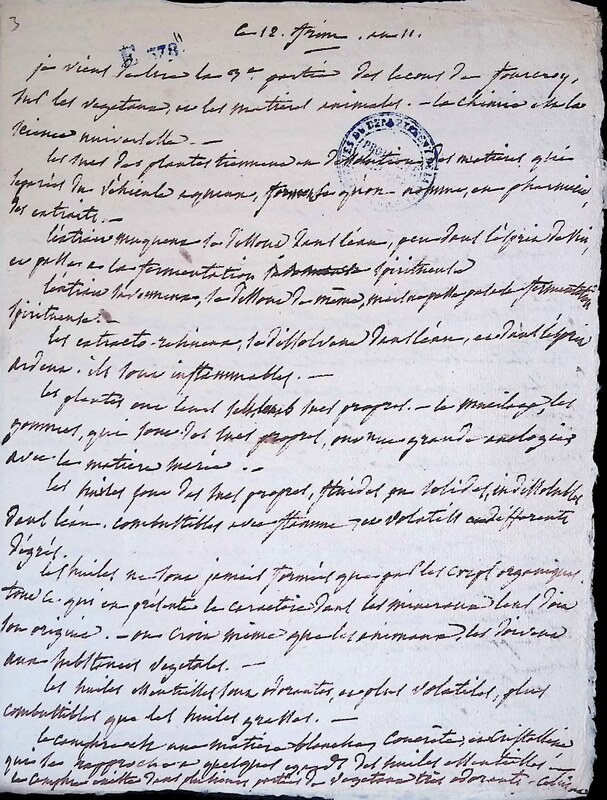 3
le 12. frim. an 11.
E 378 II
je viens de lire la 3e partie des lecons de fourcroy,
sur les vegetaux, et les matieres animales. - la chimie est la
science universelle. -
les sucs des plantes tiennent en dissolution, des matieres qui
separées du véhicule aqueux, forment ce qu'on nomme, en pharmacie,
des extraits. -
l'extrait muqueux se dissout dans l'eau, peu dans l'esprit de vin,
et passe à la fermentation spiritueuse
l'extrait savonneux, se dissout de même, mais ne passe pas à la fermentation
spiritueuse. -
les extracto-resineux, se dissolvent dans l'eau, et dans l'esprit
ardent. ils sont inflammables. -
les plantes ont leurs sucs propres. - le mucilage, les
gommes, qui sont des sucs propres, ont une grande analogie
avec la matiere
les huiles sont des sucs propres, fluides ou solides, indissolubles
dans l'eau. combustibles avec flamme - et volatils en differents
dégrés.
les huiles ne sont jamais formées que par les corps organiques
tout ce qui en présente le caractere dans les mineraux leur doit
son origine. - on croit même que les animaux, les doivent
aux substances vegetales. -
les huiles essentielles sont odorantes, et plus volatiles, plus
combustibles que les huiles grasses. -
le camphre est une matiere blanche, concrete, et cristalline
qui se rapproche à quelques égards des huiles essentielles -
le camphre existe dans plusieurs parties de vegetaux très odorants -